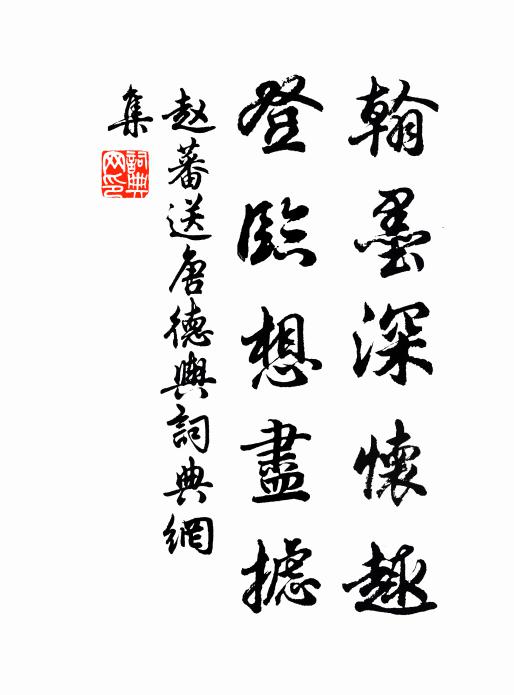 翰墨深懷趣
登臨想盡攄
赵蕃送唐德輿詞典網
集
詞典
网印